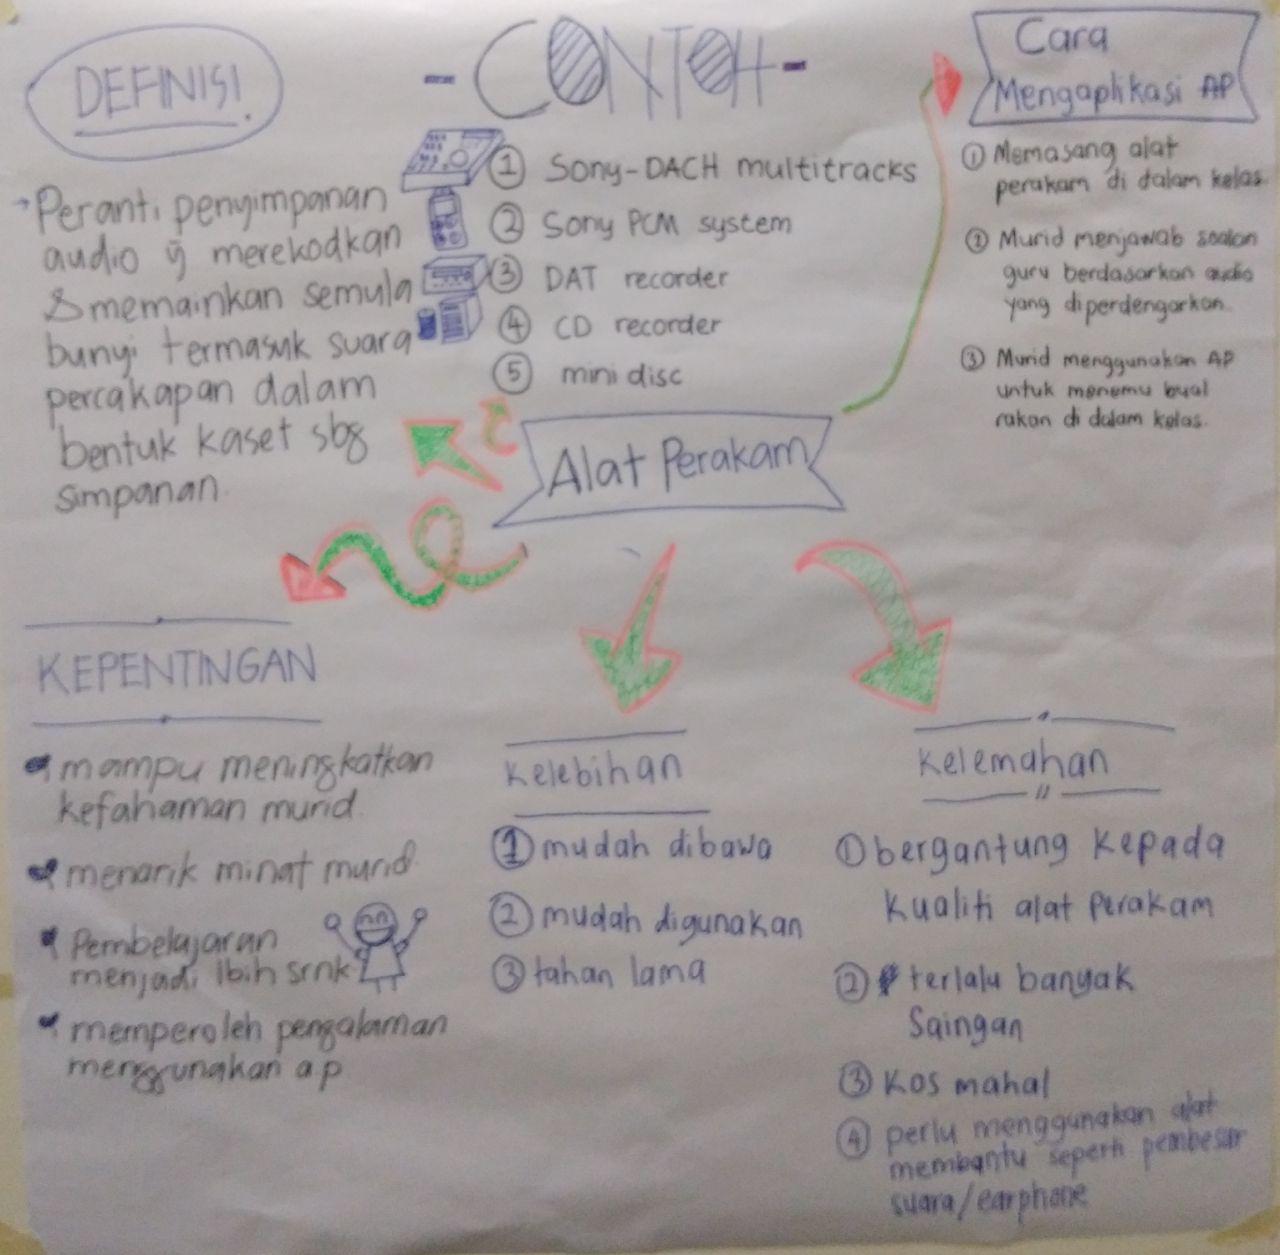 DEFINISI.
Peranti penyimpanan
audio yg merekodkan
& memainkan semula
bunyi termasuk suara
percakapan dalam
bentuk kaset sbg
simpanan.
- CONTOH -
① Sony-DACH multitracks
② Sony PCM system
③ DAT recorder
④ CD recorder
⑤ mini disc
Cara
Mengaplikasi AP
① Memasang alat
perakam di dalam kelas.
② Murid menjawab soalan
guru berdasarkan audio
yang diperdengarkan.
③ Murid menggunakan AP
untuk menemu bual
rakan di dalam kelas.
Alat Perakam
KEPENTINGAN
mampu meningkatkan
kefahaman murid.
menarik minat murid.
Pembelajaran
menjadi lbih srnk
memperoleh pengalaman
menggunakan ap
Kelebihan
① mudah dibawa
② mudah digunakan
③ tahan lama
Kelemahan
① bergantung kepada
kualiti alat perakam
② terlalu banyak
Saingan
③ Kos mahal
④ perlu menggunakan alat
membantu seperti pembesar
suara/earphone